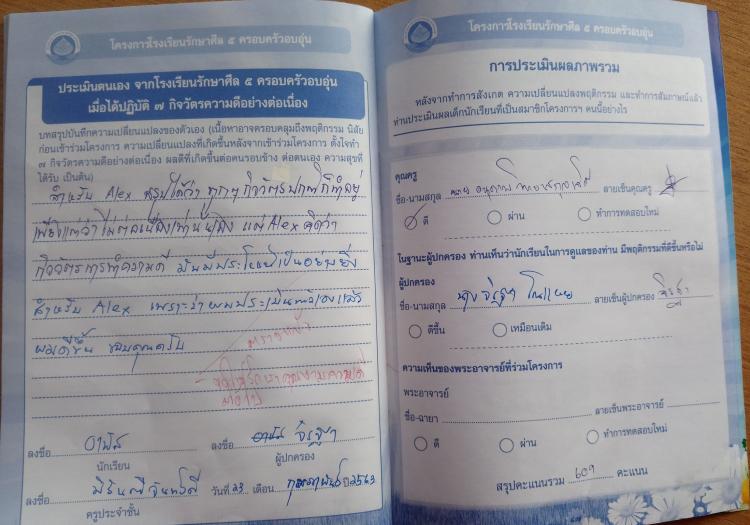 โครงการโรงเรียนรักษาศีล ๕ ครอบครัวอบอุ่น
ประเมินตนเอง จากโรงเรียนรักษาศีล ๕ ครอบครัวอบอุ่น
เมื่อได้ปฏิบัติ ๗ กิจวัตรความดีอย่างต่อเนื่อง
บทสรุปบันทึกความเปลี่ยนแปลงของตัวเอง (เนื้อหาอาจครอบคลุมถึงพฤติกรรม นิสัย
ก่อนเข้าร่วมโครงการ ความเปลี่ยนแปลงที่เกิดขึ้นหลังจากเข้าร่วมโครงการ ตั้งใจทำ
๗ กิจวัตรความดีอย่างต่อเนื่อง ผลดีที่เกิดขึ้นต่อคนรอบข้าง ต่อตนเอง ความสุขที่
ได้รับ เป็นต้น)
สำหรับ Alex สรุปได้ว่า ทุกๆ กิจวัตรปกติก็ทำอยู่
เพียงแต่ว่าไม่ต่อเนื่องเท่านั้นเอง แต่ Alex คิดว่า
กิจวัตรการทำความดี มันมีประโยชน์เป็นอย่างยิ่ง
สำหรับ Alex เพราะว่าผมประเมินตัวเองแล้ว
ผมดีขึ้น ขอบคุณครับ
ขอให้รักษาคุณงามความดี
ต่อไป
ลงชื่อ ลงชื่อ
นักเรียน ผู้ปกครอง
ลงชื่อ วันที่ 23 เดือน กุมภาพันธ์ ปี 2563
ครูประจำชั้น
โครงการโรงเรียนรักษาศีล ๕ ครอบครัวอบอุ่น
การประเมินผลภาพรวม
หลังจากทำการสังเกต ความเปลี่ยนแปลงพฤติกรรม และทำการสัมภาษณ์แล้ว
ท่านประเมินผลเด็กนักเรียนที่เป็นสมาชิกโครงการฯ คนนี้อย่างไร
คุณครู
ชื่อ-นามสกุล นาย ลายเซ็นคุณครู
ดี ผ่าน ทำการทดสอบใหม่
ในฐานะผู้ปกครอง ท่านเห็นว่านักเรียนในการดูแลของท่าน มีพฤติกรรมที่ดีขึ้นหรือไม่
ผู้ปกครอง
ชื่อ-นามสกุล นาง ลายเซ็นผู้ปกครอง
ดีขึ้น เหมือนเดิม
ความเห็นของพระอาจารย์ที่ร่วมโครงการ
พระอาจารย์
ชื่อ-ฉายา ลายเซ็นพระอาจารย์
ดี ผ่าน ทำการทดสอบใหม่
สรุปคะแนนรวม 609 คะแนน